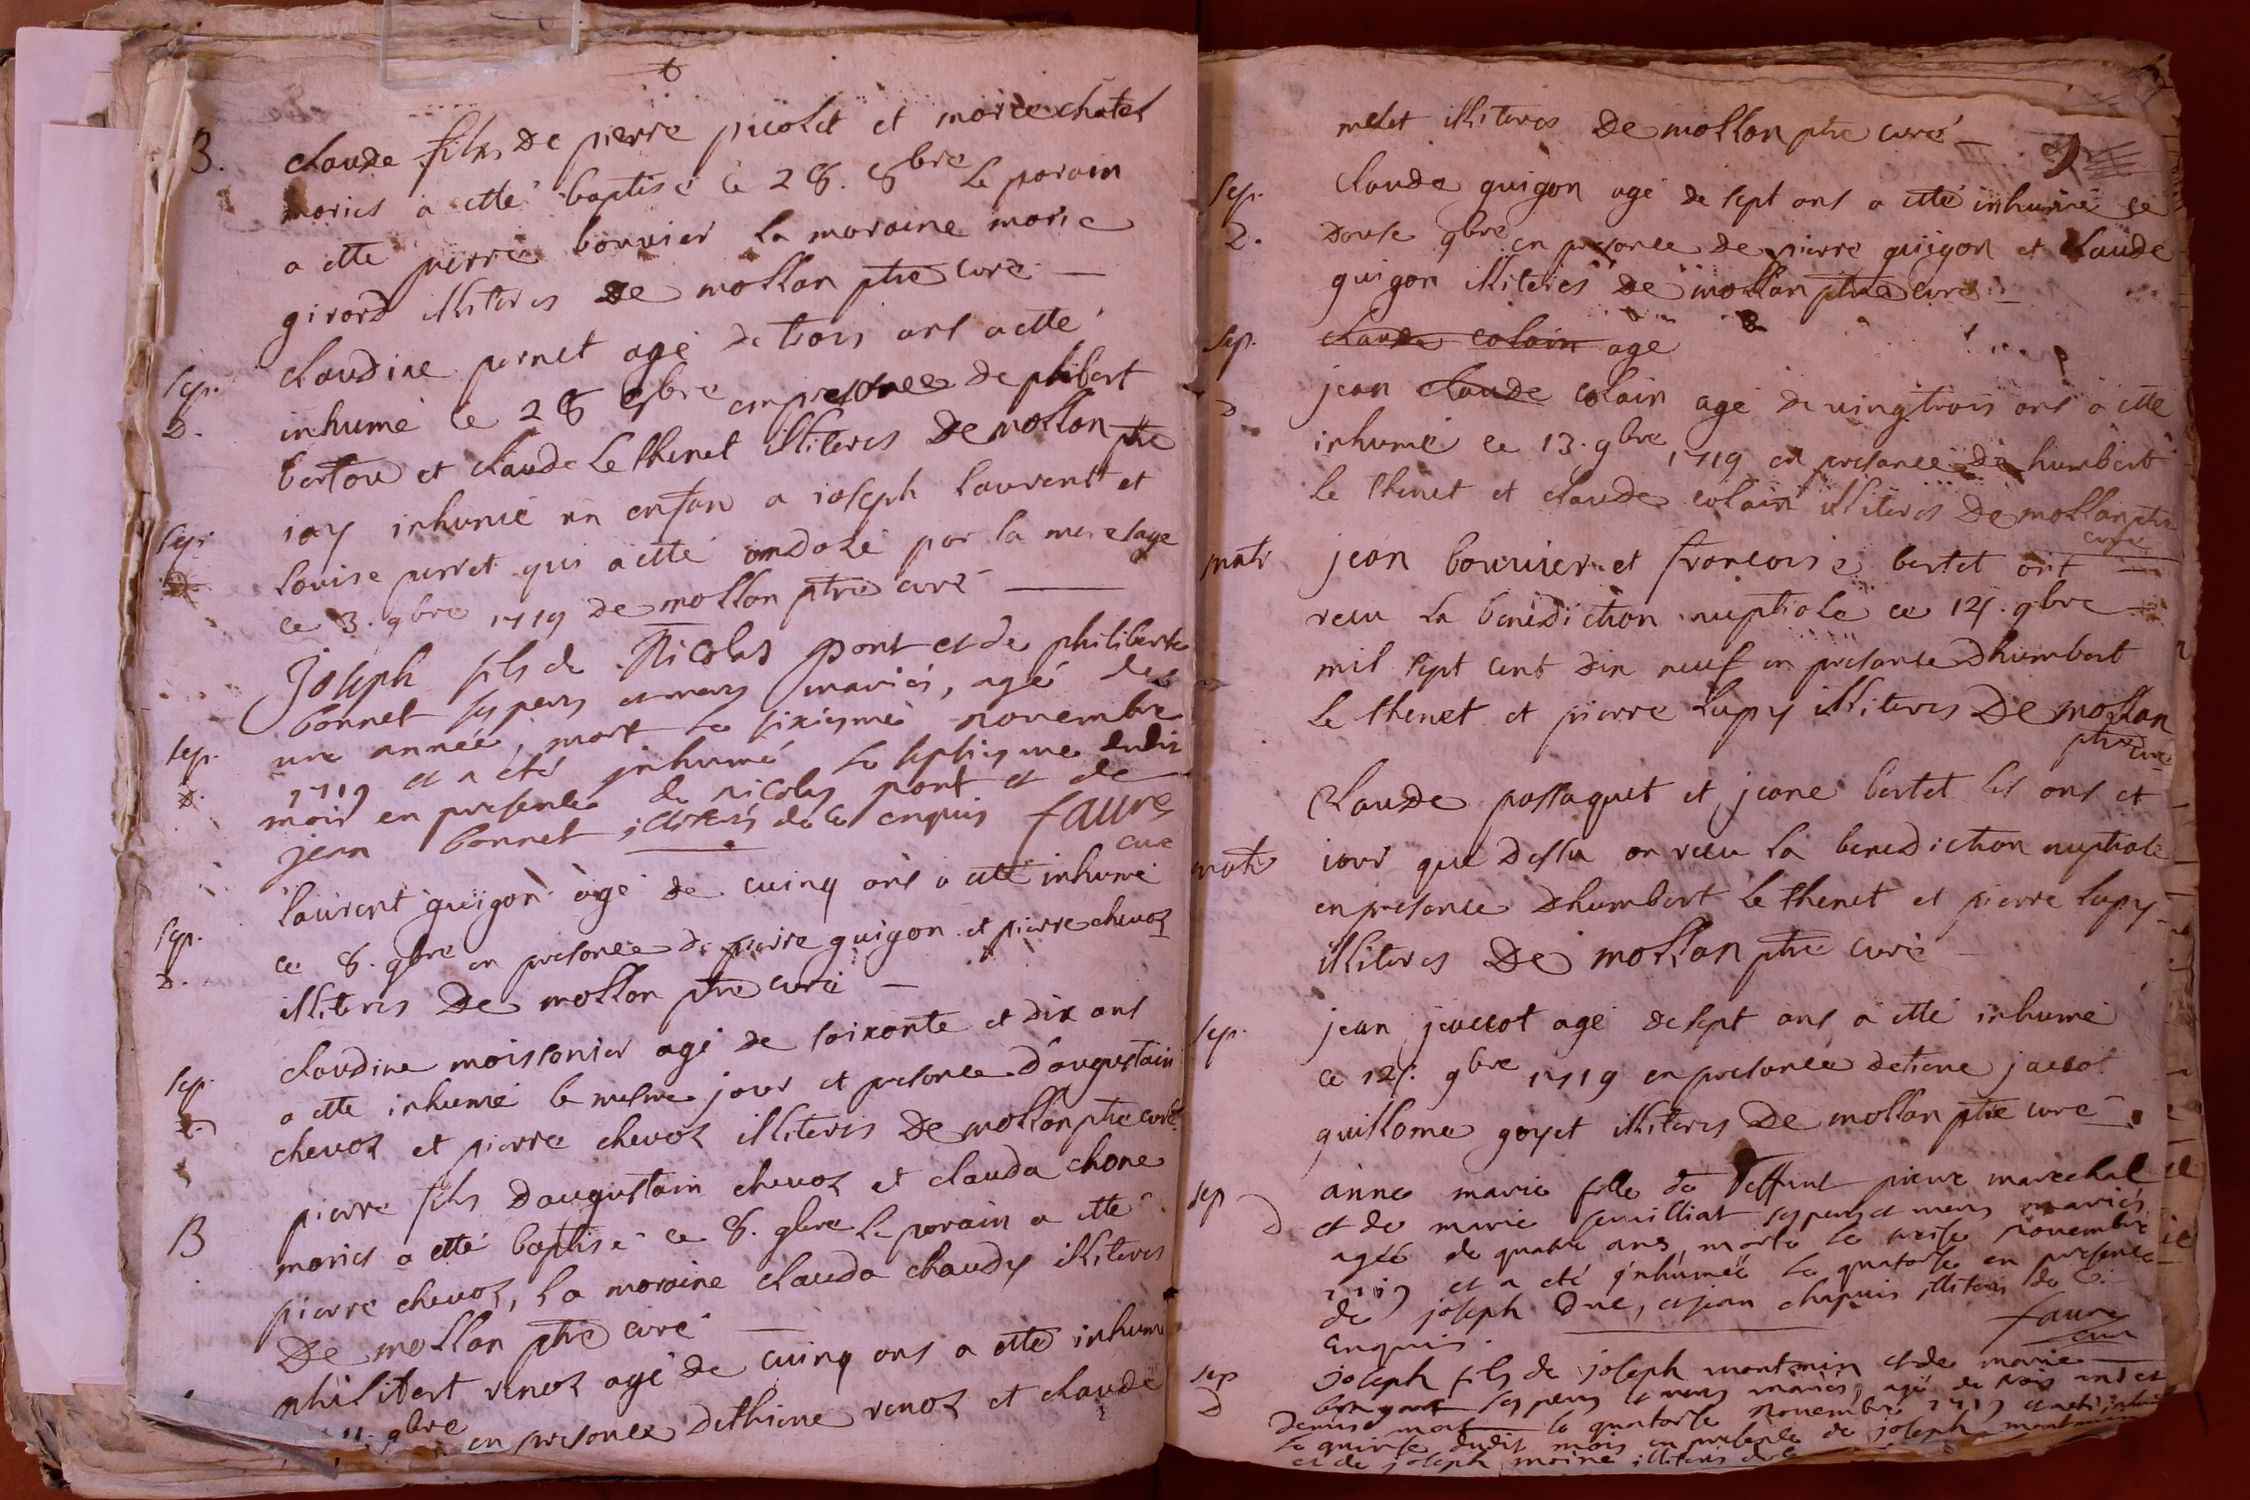 B. claude fils de pierre picolet et marie chatel
maries a etté baptisé ce 28. 8bre le parain
a etté pierre bouvier la maraine marie
girard illiteres De mollan ptre curé
sep. claudine pernet agé de trois ans a etté
D. inhumé ce 28 8bre en presence de philbert
berton et claude le thenet illiteres De mollan ptre
sep. iay inhumé un enfan a ioseph laurent et
D. louise perret qui a etté ondoié par la mere sage
ce 3. 9bre 1719 de mollan ptre curé
Joseph fils de Nicolas pont et de philiberte
bonnet ses peres et mere mariés, agé de
sep. une année, mort le sixiesme novembre
D. 1719 et a été inhumé le septiesme dudit
mois en presence de nicolas pont et de
jean bonnet illiterés de ce enquis faure
curé
laurent guigon agé de cuinq ans a etté inhumé
sep. ce 8. 9bre en presence de pierre guigon et pierre chevoz
D. illiteres De mollan ptre curé
sep. claudine moissonier agé de soixante et dix ans
D. a etté inhumé le mesme jour et presence d'augustain
chevoz et pierre chevoz illiteres De mollan ptre curé
pierre fils d'augustain chevoz et clauda chane
B maries a etté baptisé ce 8. 9bre le parain a etté
pierre chevoz, la maraine clauda chaudy illiteres
De mollan ptre curé
philibert renoz agé de cuinq ans a etté inhumé
11. 9bre en presence dethiene renoz et claude
9
melet illiteres De mollan ptre curé
sep. Claude guigon agé de sept ans a etté inhumé ce
D. douse 9bre en presence de pierre guigon et claude
guigon illiteres De mollan ptre curé
sep. claude colain age
D jean claude colain agé de vingtrois ans a etté
inhumé ce 13. 9bre 1719 en presance de humbert
le thenet et claude colain illiteres De mollan ptre
curé
matr jean bouvier et francoise bertet ont
recu la benediction nuptiale ce 14. 9bre
mil sept cent dix neuf en presance dhumbert
le thenet et pierre lupy illiteres De mollan
ptre curé
Claude passaquet et jeane bertet les ans et
matr iour que dessu on recu la benediction nuptiale
en presance dhumbert le thenet et pierre lupy
illiteres De mollan ptre curé
sep. jean jaccot agé de sept ans a etté inhumé
ce 14. 9bre 1719 en presance detiene jaccot
guillome goyet illiteres De mollan ptre curé
sep anne marie fille de deffunt pierre marechal
D et de marie ses peres et mere mariés
agée de quatre ans, morte le treise novembre
1719 et a été inhumée le quatorse en presence
de joseph Duc, et jean chapuis illiteres de ce
enquis. faure
curé
sep joseph fils de joseph montmin et de marie
D ses peres et mere mariés, agé de trois ans et
demi mort le quatorse novembre 1719 et a été inhumé
le quinse dudit mois en presence de joseph montmin
et de joseph moine illiteres de ce